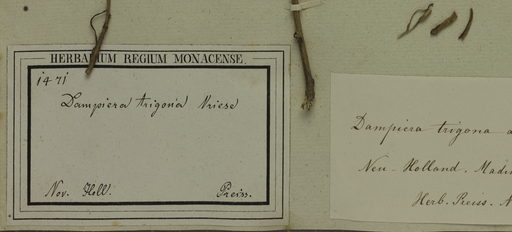 HERBARIUM REGIUM MONACENSE.
1471
Dampiera trigona Vriese
Nov. Holl. Preiss.
Dampiera trigona
Neu-Holland.
Herb. Preiss. N